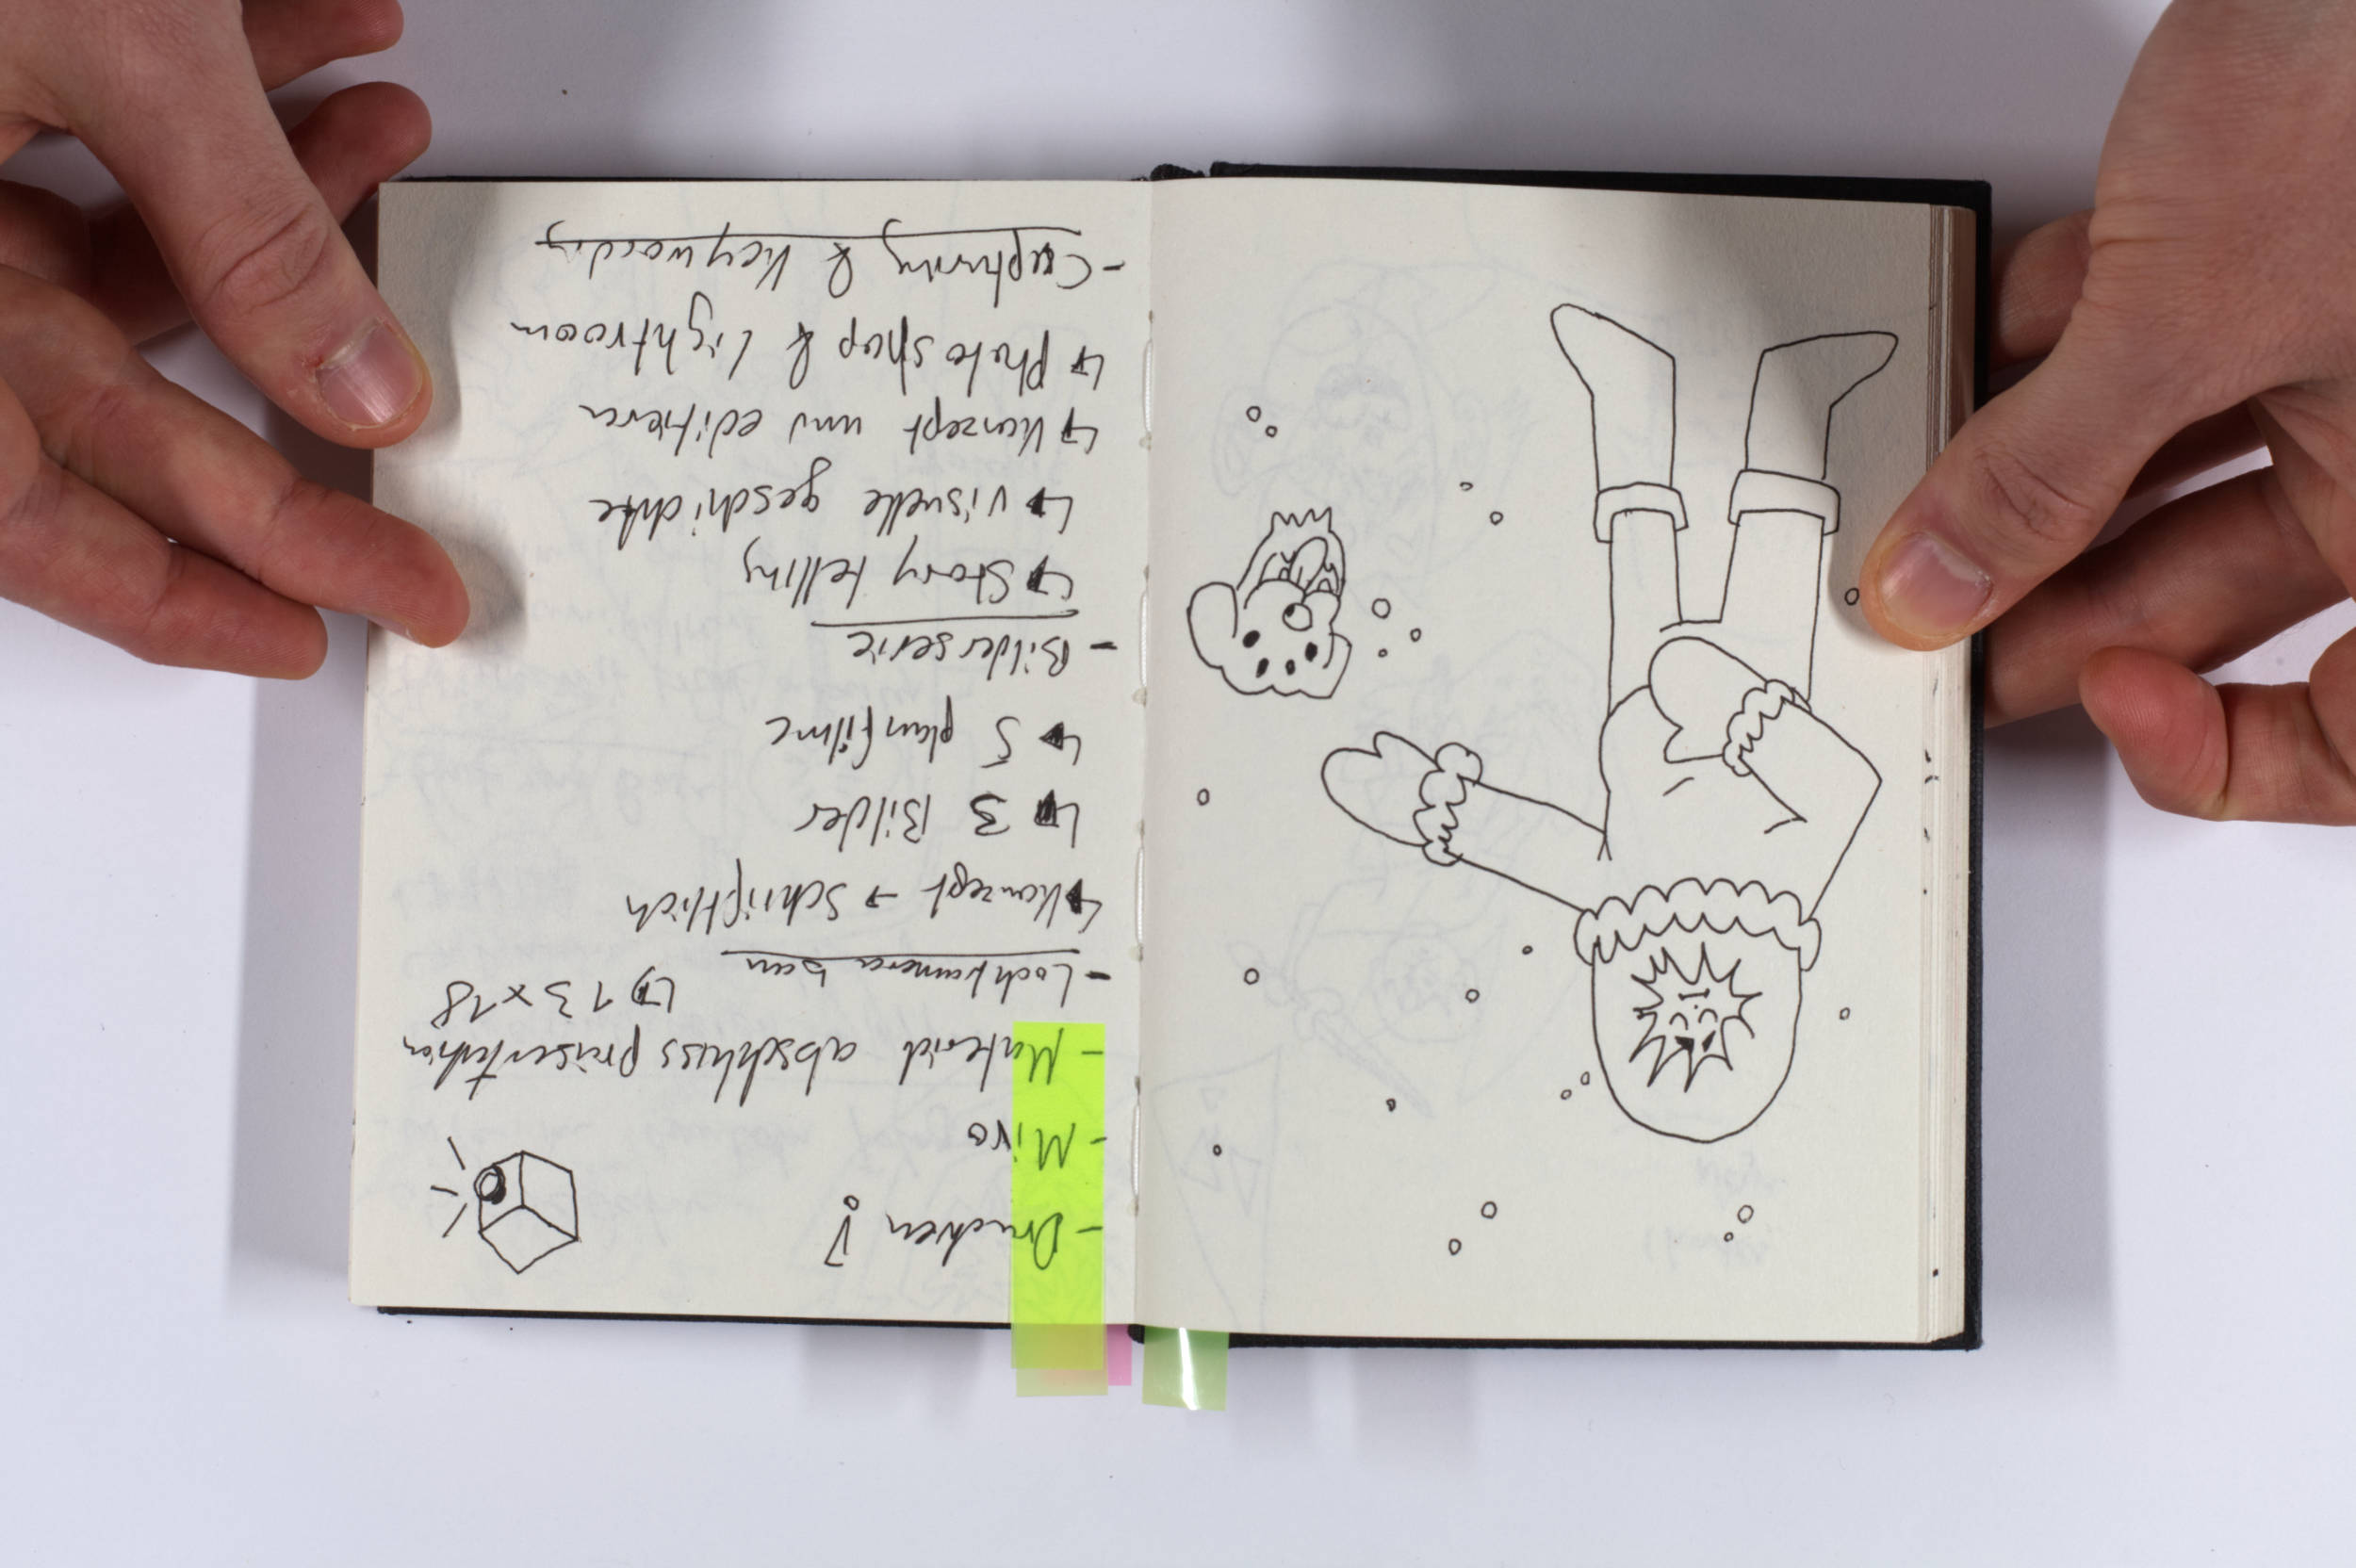 - Drucken !
- Miro
- Material abschluss präsentation
↳ 13x18
- Lochkamera bau
↳ Konzept → Schriftlich
↳ 3 Bilder
↳ 5 planfilme
- Bilderserie
↳ Story telling
↳ visuelle geschichte
↳ Konzept und editieren
↳ Photoshop & Lightroom
- Capturing & Keywording